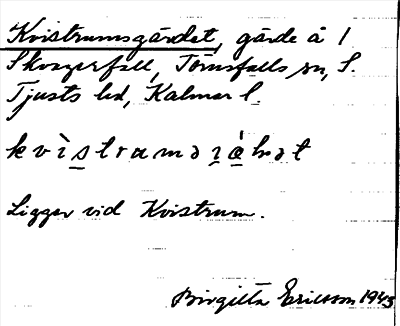 Kvistrumsgärdet, gärde å 1
Skvagerfall, Törnsfalls sn, S.
Tjusts hd, Kalmar l.
Ligger vid Kvistrum.
Birgitta Ericsson 1943